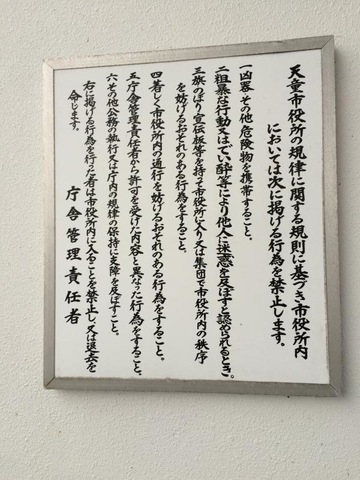 天童市役所の規律に関する規則に基づき市役所内
においては次に掲げる行為を禁止します。
一凶器その他危険物を携帯すること。
二粗暴な行動又はでい酔等により他人に迷惑を及ぼすと認められるとき。
三旗のぼり宣伝板等を持って市役所に入り又は集団で市役所内の秩序
を妨げるおそれのある行為をすること。
四著しく市役所内の通行を妨げるおそれのある行為をすること。
五庁舎管理責任者から許可を受けた内容と異なった行為をすること。
六その他公務の執行又は庁内の規律の保持に支障を及ぼすこと。
右に掲げる行為を行った者は市役所内に入ることを禁止し、又は退去を
命じます。
庁舎管理責任者